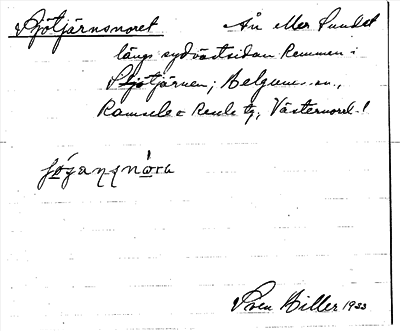 Sjötjärnsnoret Ån eller Sundet
längs sydvästsidan Remmen i
Sjötjärnen; Helgums sn.,
Ramsele o Resele tg, Västernorrl. l
Sven Hiller 1933